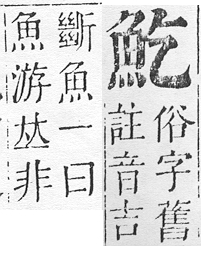 䰴
俗字舊
註音吉
斷魚一曰
魚游𠀤非